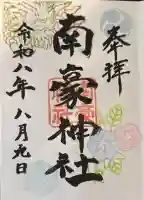 奉拝
南豪神社
令和八年八月元日